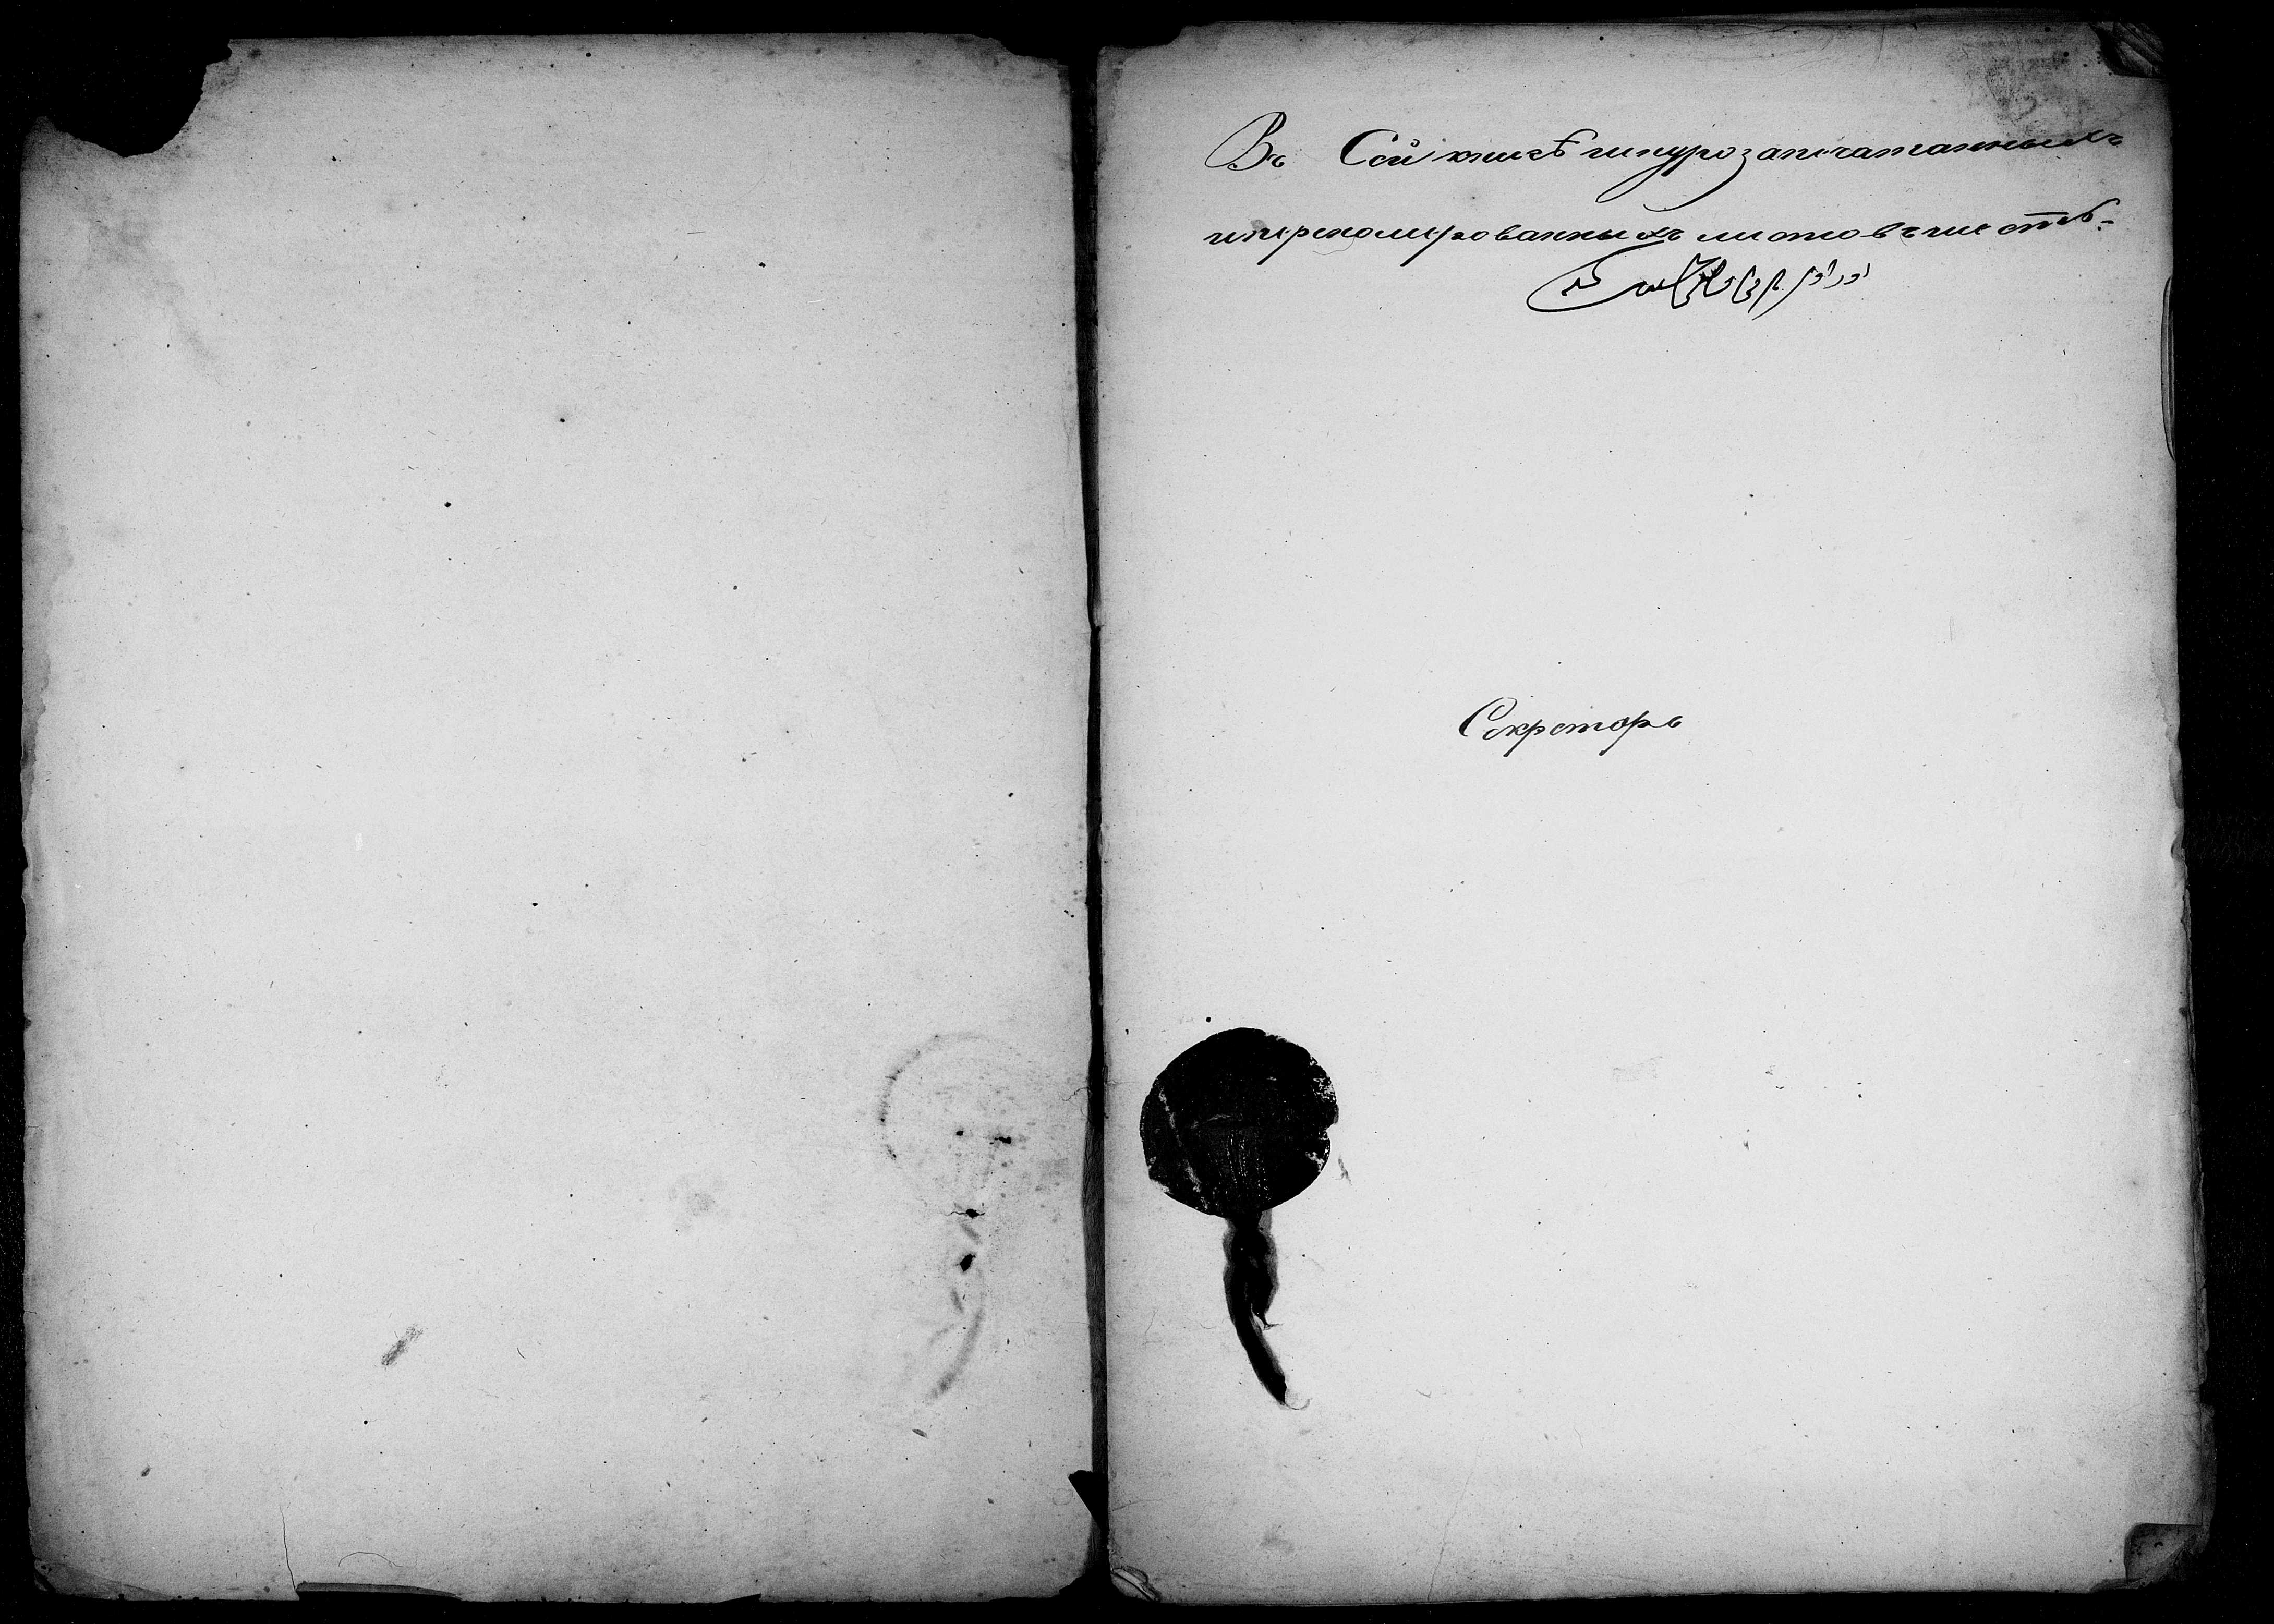 Въ Сей книгѣ шнурозапечатанныхъ
и переномерованныхъ листовъ шесть.
Секретарь